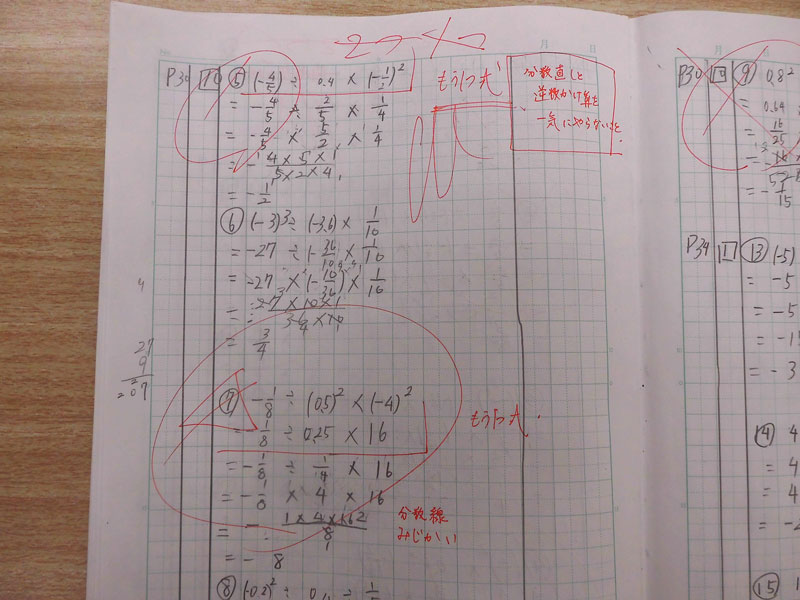 P30 10 ⑤ (-4/5) ÷ 0.4 × (-1/2)²
= -4/5 ÷ 2/5 × 1/4
= -4/5 × 5/2 × 1/4
= - 4×5×1/5×2×4
= -1/2
⑥ (-3)³÷(-3.6)× 1/10
= -27 ÷(-36/10)× 1/10
= -27 ×(-10/36)× 1/10
27×10×1/36×10
= 3/4
⑦ -1/8 ÷ (0.5)² × (-4)²
-1/8 ÷ 0.25 × 16
= -1/8 ÷ 1/4 × 16
= -1/8 × 4 × 16
= - 1×4×16/8
= - 8
⑧ (-0.2)² ÷
もう1つ式
分数直しと
逆数かけ算を
一気にやらないこと.
もう1つ式.
分数線
みじかい
27
9
P30 10 ⑨ 0.8²
= 0.64
= 16/25
P34 11 ⑬ (-5)
= -5
= -5
= -3
⑭ 4
= 4
= 4
⑮